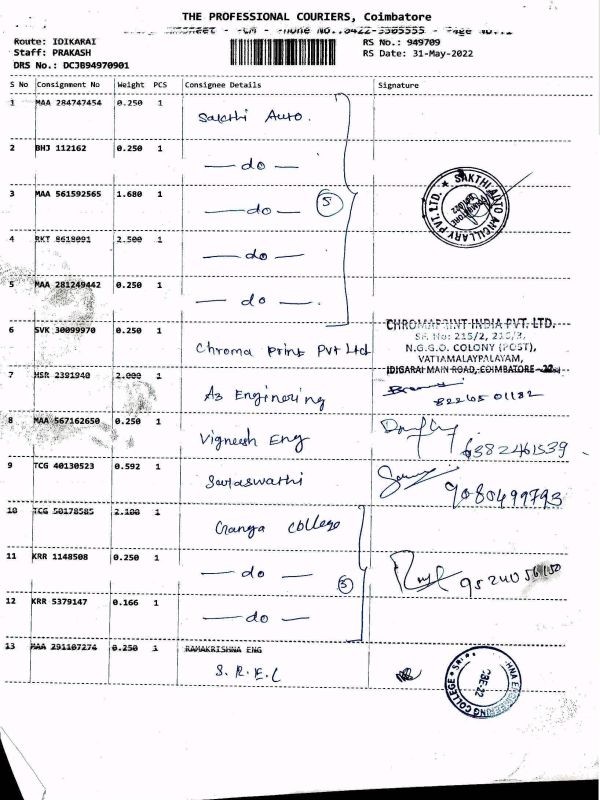 THE PROFESSIONAL COURIERS, Coimbatore
Phone No.:0422-3305555 - Page No.:
Route: IDIKARAI
Staff: PRAKASH
DRS No.: DCJB94970901
RS No.: 949709
RS Date: 31-May-2022
S No Consignment No Weight PCS Consignee Details Signature
1 MAA 284747454 0.250 1 Sakthi Auto.
2 BHJ 112162 0.250 1 — do —
3 MAA 561592565 1.680 1 — do — 5
SAKTHI AUTO ANCILLARY PVT. LTD.
4 RKT 8618091 2.500 1 — do —
5 MAA 281249442 0.250 1 — do —.
6 SVK 30099970 0.250 1 Chroma Print Pvt Ltd
CHROMAPRINT INDIA PVT. LTD.
SF. No: 215/2, 215/3,
N.G.G.O. COLONY (POST),
VATTAMALAYPALAYAM,
IDIGARAI MAIN ROAD, COIMBATORE - 22.
7 HSR 2391940 2.000 1 A3 Enginering
8 MAA 567162650 0.250 1 Vignesh Eng 6382461539
9 TCG 40130523 0.592 1 Saraswathi 9080499793
10 TCG 50178585 2.100 1 Ganga College
11 KRR 1148508 0.250 1 — do — 3
12 KRR 5379147 0.166 1 — do —
13 MAA 291107274 0.250 1 RAMAKRISHNA ENG
S.R.E.C
ENGINEERING COLLEGE
CBE-22